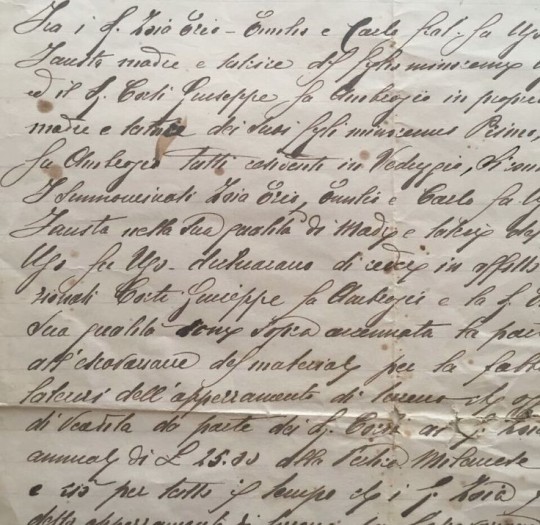 Tra i S. Zoia Ezio - Emilio e Carlo frat. fu Ugo
Fausta madre e tutrice dei figli minorenni
ed il S. Corti Giuseppe fu Ambrogio in proprio
madre e tutrice dei suoi figli minorenni Primo,
fu Ambrogio tutti residenti in Vedeggio, si con
I summenzionati Zoia Ezio, Emilio e Carlo fu
Fausta nella sua qualità di Madre e tutrice
Ugo fu Ugo - dichiarano di cedere in affitto
zionati Corti Giuseppe fu Ambrogio e la S.
sua qualità come sopra accennata la parte
all'escavazione del materiale per la fabb
laterizi dell'appezzamento di terreno
di vendita da parte dei S. Corti ai S. Zoia
annuali di £ 25.30 alla Pertica Milanese
e ciò per tutto il tempo che i S. Zoia
dello appezzamento di terreno